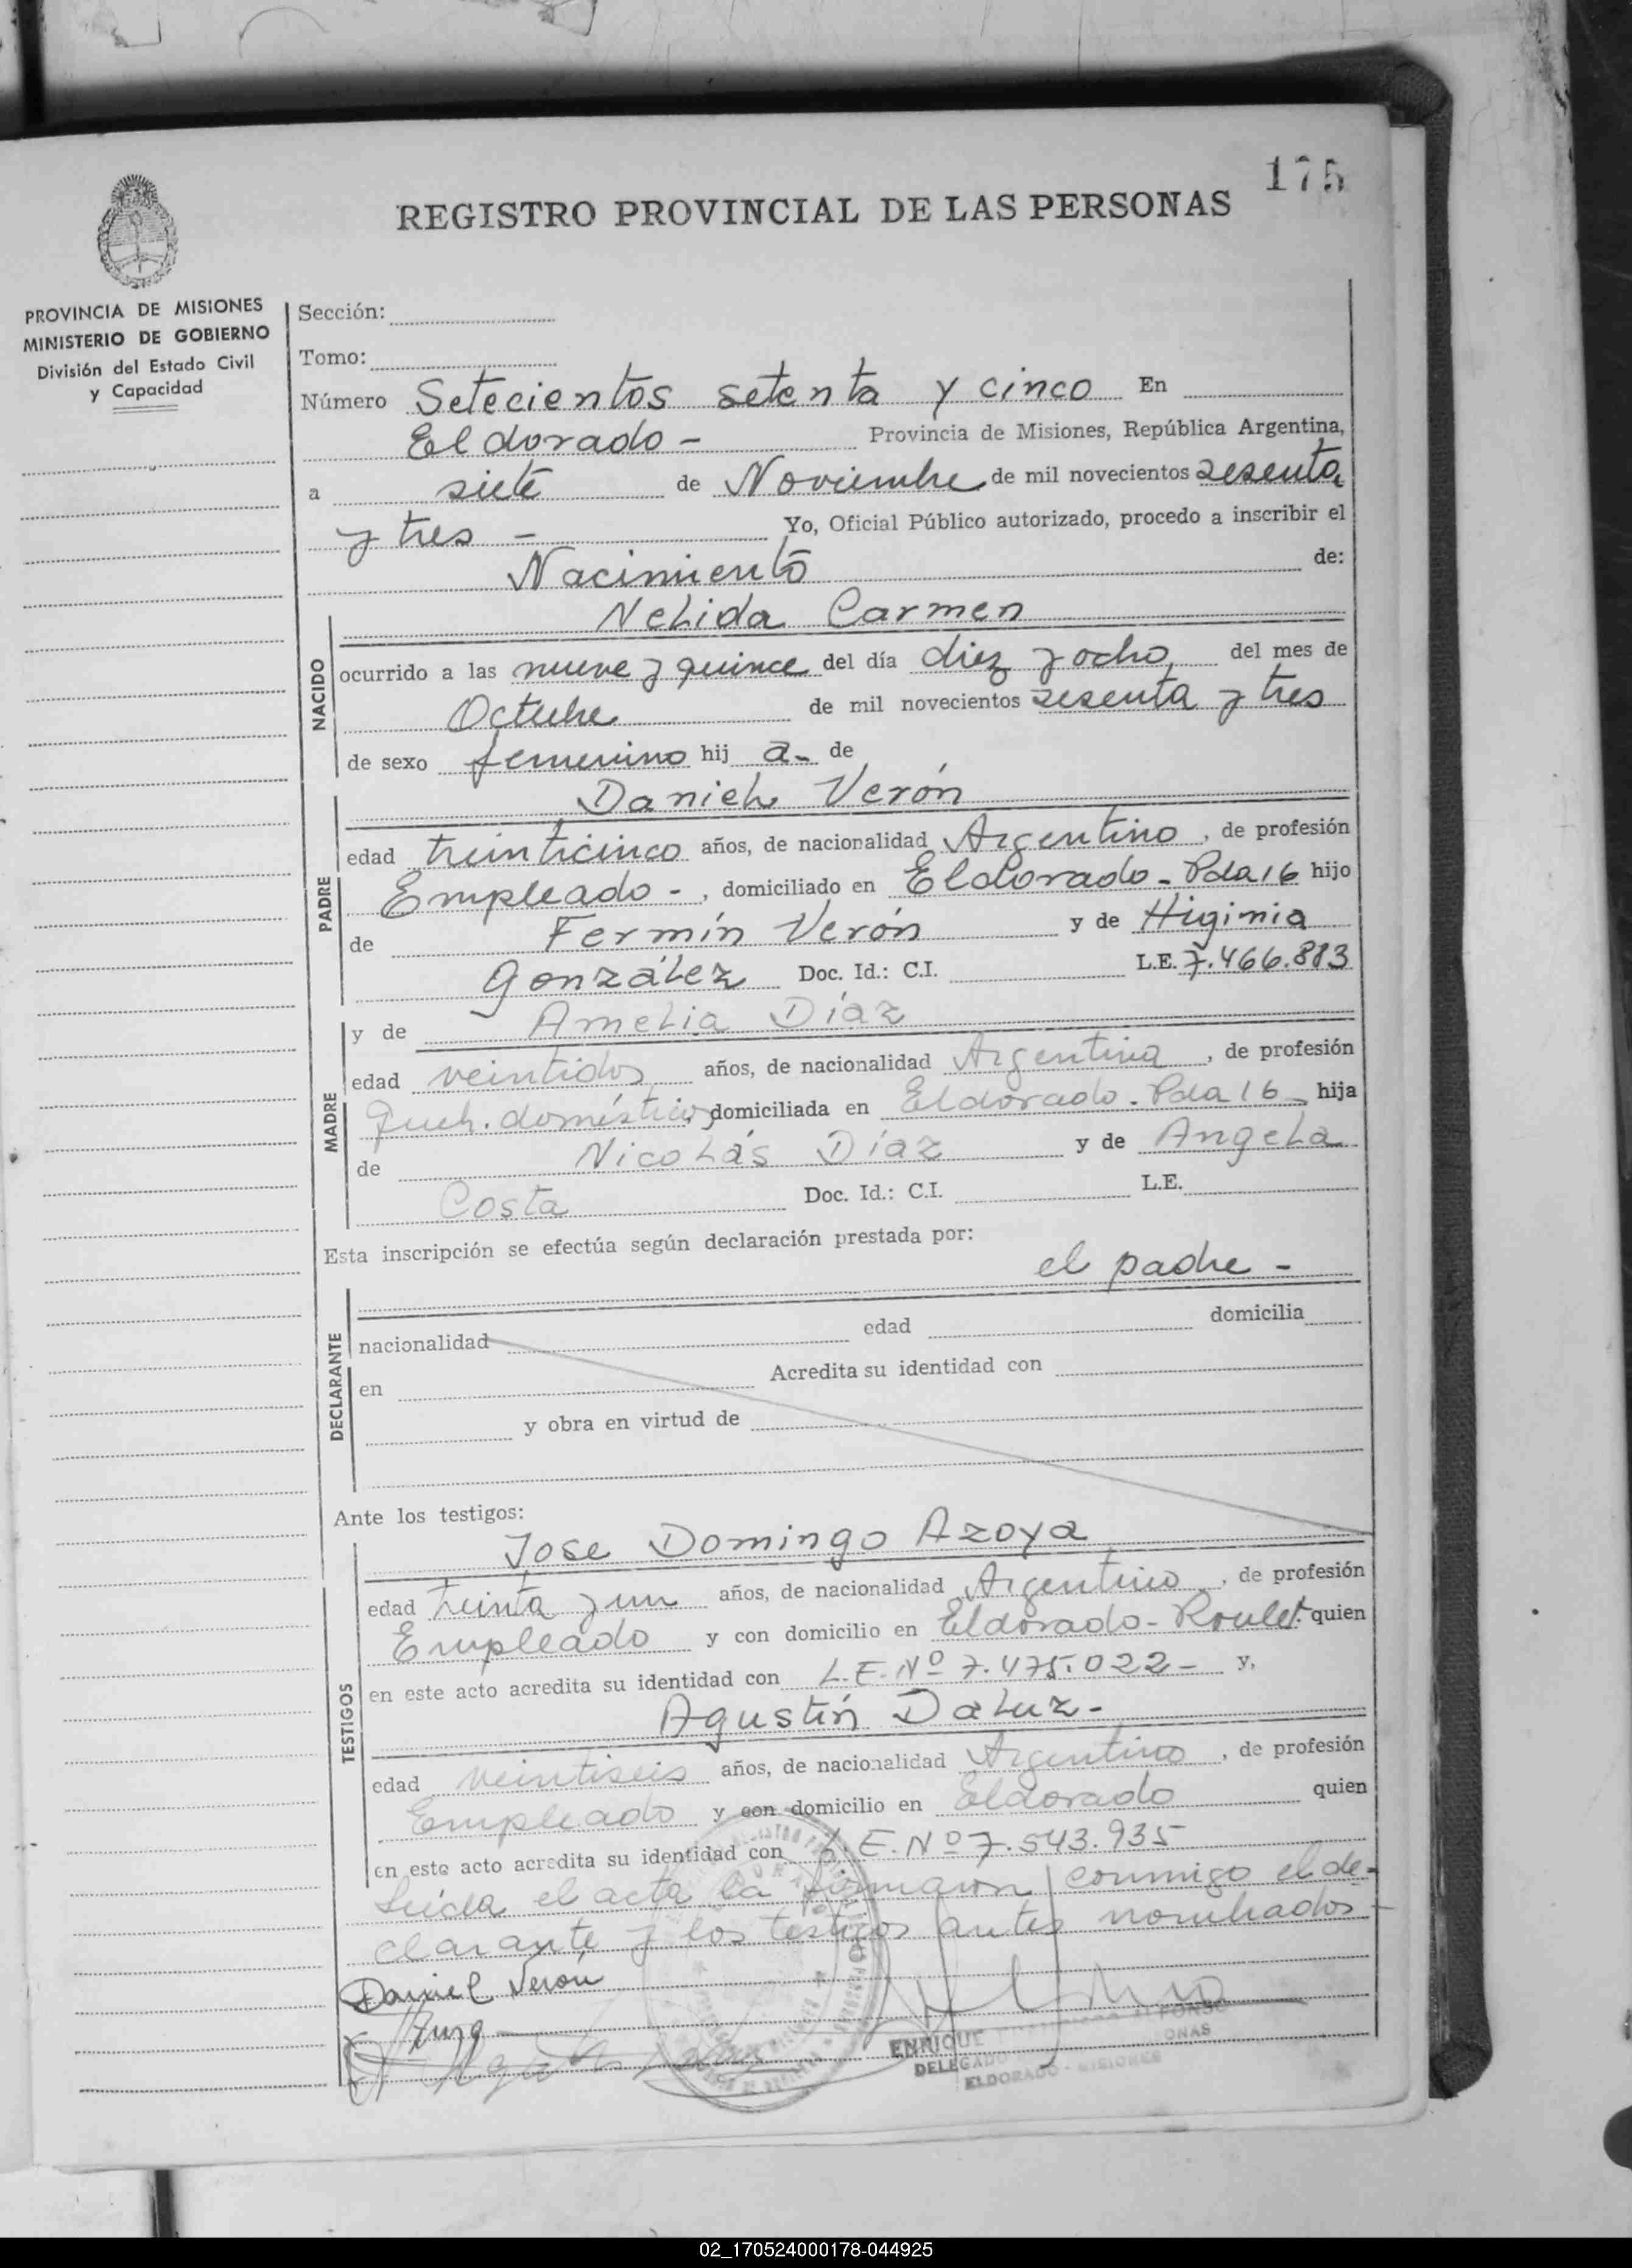 175
REGISTRO PROVINCIAL DE LAS PERSONAS
PROVINCIA DE MISIONES
MINISTERIO DE GOBIERNO
División del Estado Civil
y Capacidad
Sección:
Tomo:
Número Setecientos setenta y cinco En
Eldorado - Provincia de Misiones, República Argentina,
a siete de Noviembre de mil novecientos sesenta
y tres - Yo, Oficial Público autorizado, procedo a inscribir el
Nacimiento de:
NACIDO
Nelida Carmen
ocurrido a las nueve y quince del día diez y ocho del mes de
Octubre de mil novecientos sesenta y tres
de sexo femenino hij a- de
PADRE
Daniel Verón
edad treinticinco años, de nacionalidad Argentino, de profesión
Empleado - , domiciliado en Eldorado - Pda 16 hijo
de Fermín Verón y de Higinia
González Doc. Id.: C.I. L.E. 7.466.883
MADRE
y de Amelia Díaz
edad veintidos años, de nacionalidad Argentina, de profesión
Queh. domésticos, domiciliada en Eldorado. Pda 16 - hija
de Nicolás Díaz y de Angela
Costa Doc. Id.: C.I. L.E.
Esta inscripción se efectúa según declaración prestada por:
el padre -
DECLARANTE
nacionalidad edad domicilia
en Acredita su identidad con
y obra en virtud de
Ante los testigos:
TESTIGOS
Jose Domingo Azoya
edad treinta y un años, de nacionalidad Argentino, de profesión
Empleado y con domicilio en Eldorado - Roulet. quien
en este acto acredita su identidad con L.E. Nº 7.475.022 - y,
Agustín DaLuz -
edad veintiseis años, de nacionalidad Argentino, de profesión
Empleado y con domicilio en Eldorado quien
en este acto acredita su identidad con L.E. Nº 7.543.935
Leída el acta la firmaron conmigo el de-
clarante y los testigos antes nombrados -
Daniel Verón
ENRIQUE ALFONSO
DELEGADO
ELDORADO - MISIONES
02_170524000178-044925